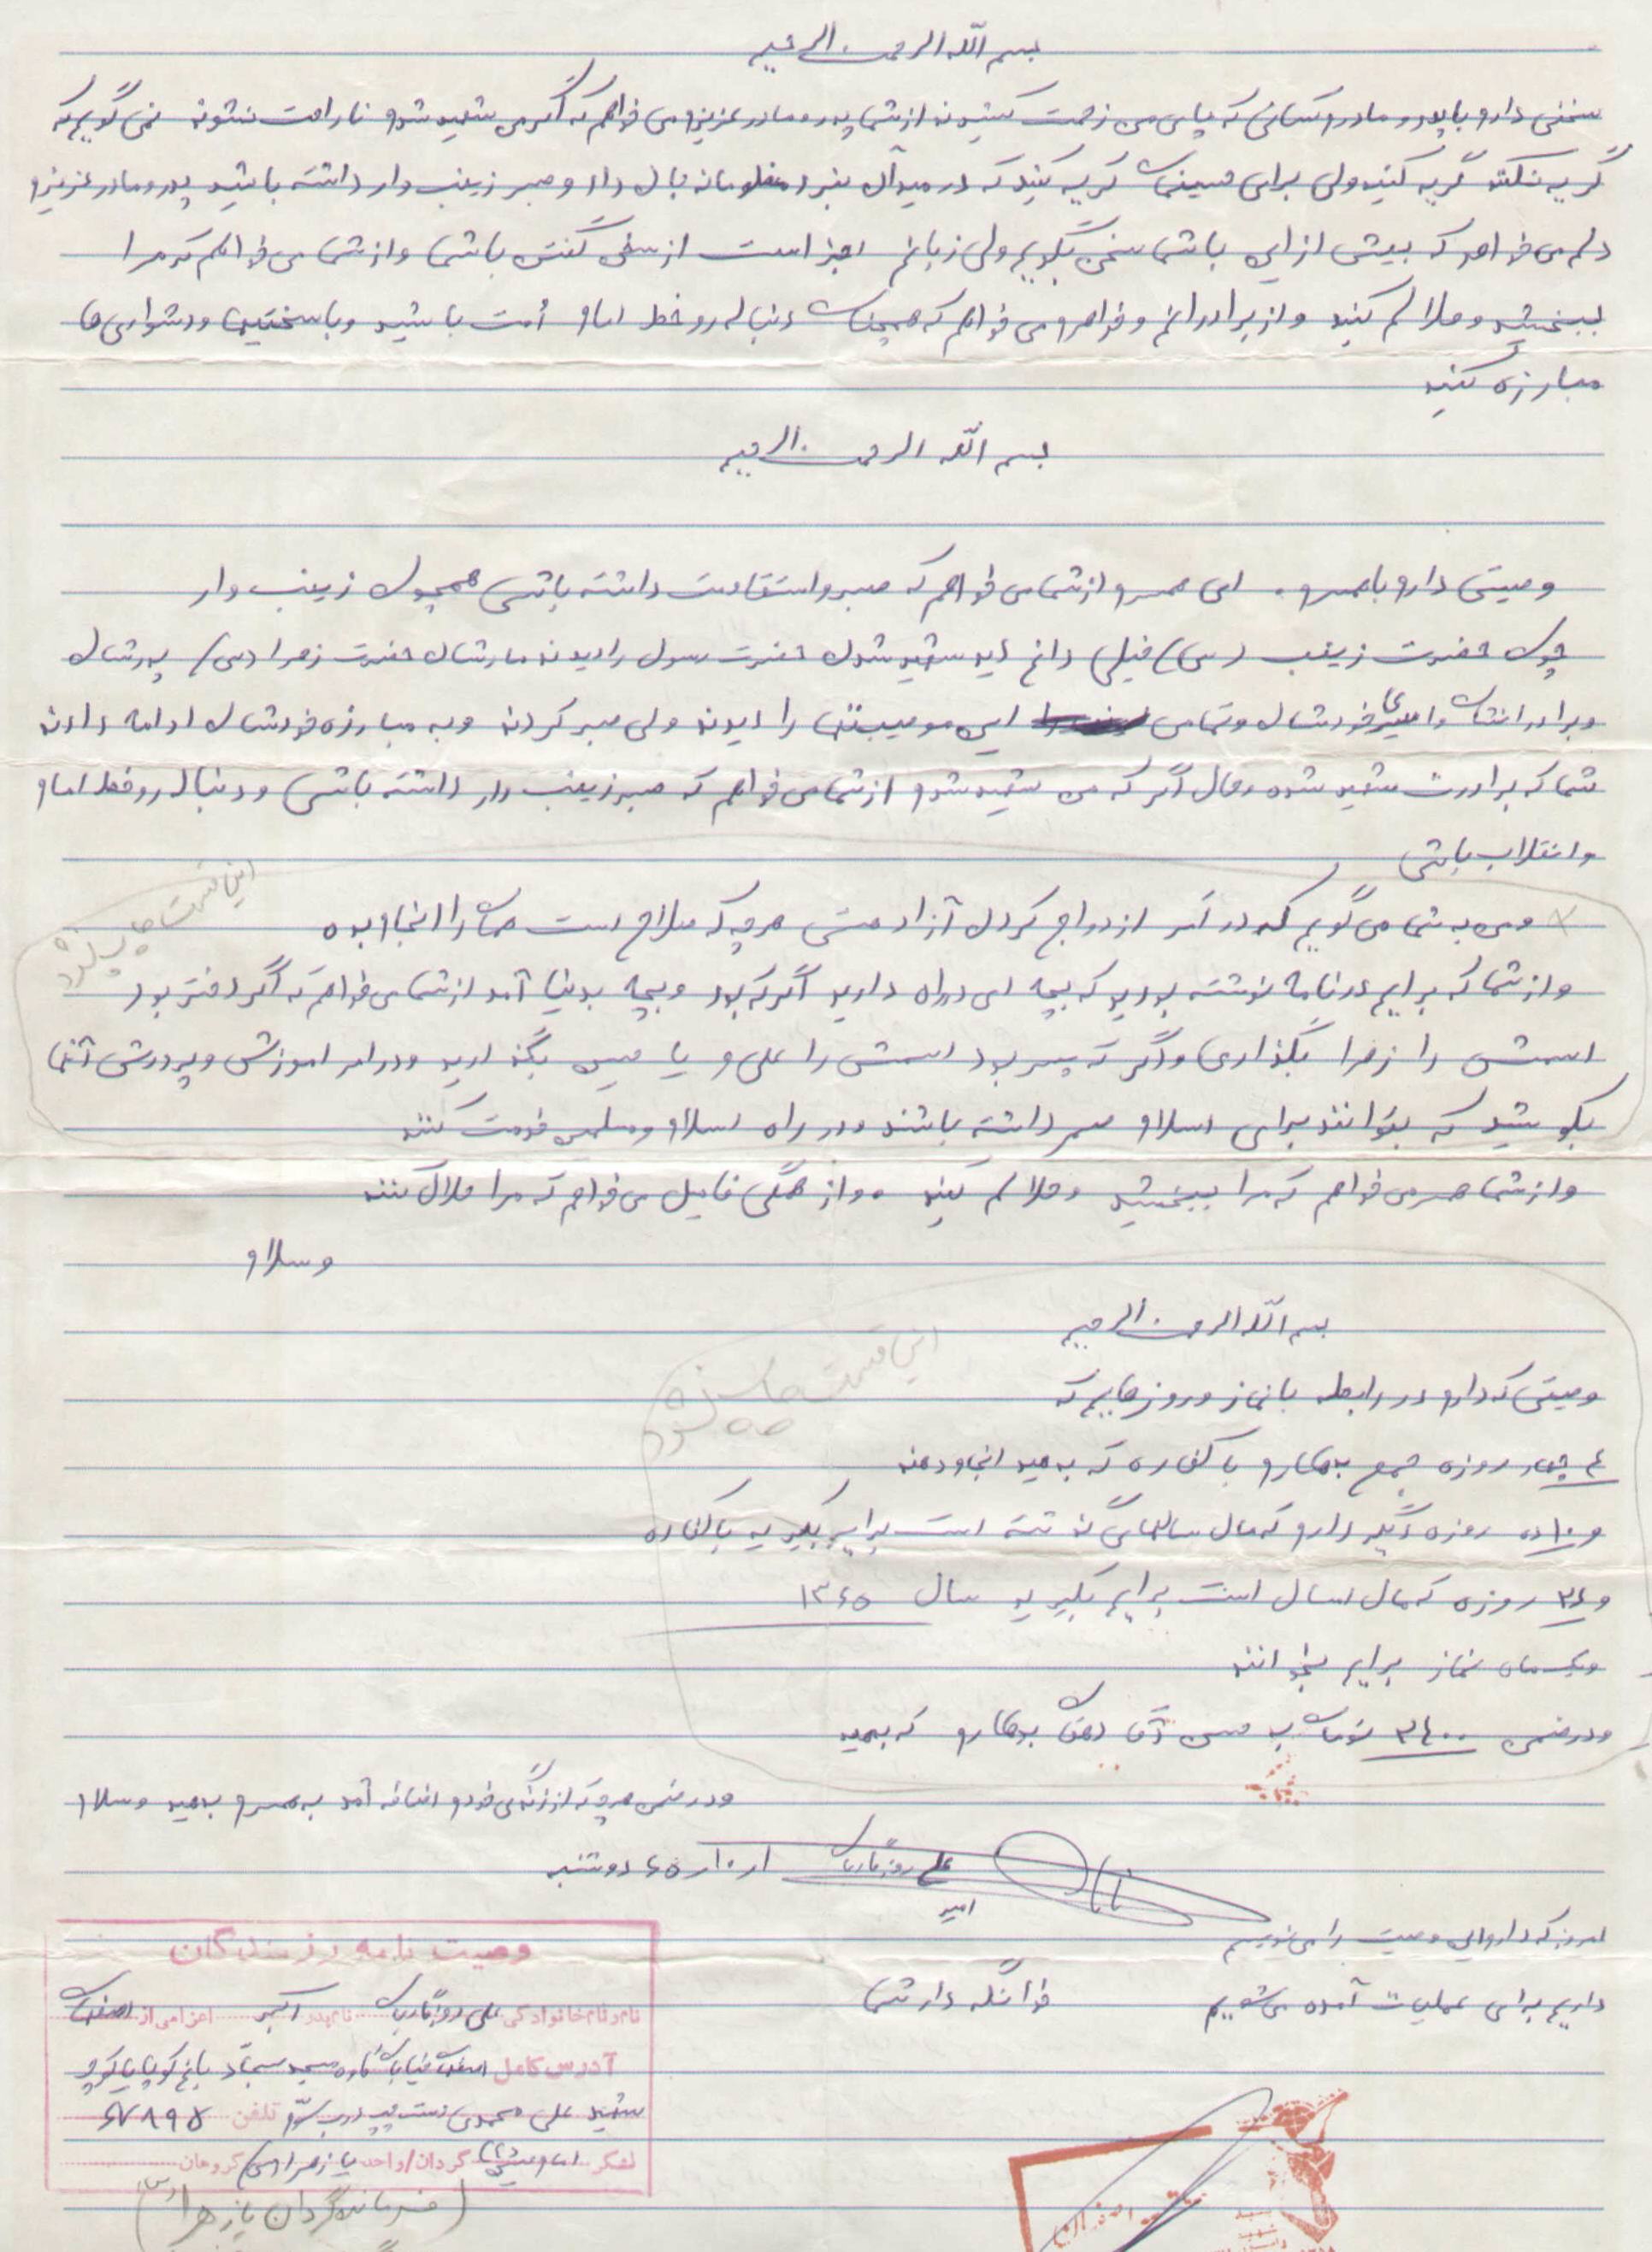 بسم الله الرحمن الرحیم
سخنی دارم با پدر و مادرم کسانی که پای من زحمت کشیدند از شما پدر و مادر عزیزم می خواهم که اگر من شهید شدم ناراحت نشوند نمی گویم که
گریه نکنید گریه کنید ولی برای حسینمان گریه کنید که در میدان نبرد مظلومانه جان داد و صبر زینب وار داشته باشید پدر و مادر عزیزم
دلم می خواهد که بیش از این با شما سخن بگویم ولی زبانم اجز است از سخن گفتن با شما و از شما می خواهم که مرا
ببخشید و حلالم کنید و از برادرانم و خواهرم می خواهم که همچنان دنباله رو خط امام اُمت باشید و با سختیها و دشواری ها
مبارزه کنید
بسم الله الرحمن الرحیم
وصیتی دارم با همسرم . ای همسرم از شما می خواهم که صبر و استقامت داشته باشی همچون زینب وار
چون حضرت زینب (س) خیلی داغ دید شهید شدن حضرت رسول را دیدند مادرشان حضرت زهرا (س) پدرشان
و برادرانشان و اسیری خودشان و تمامی این موصیبتها را دیدند ولی صبر کردند و به مبارزه خودشان ادامه دادند
شما که برادرت شهید شده و حال اگر که من شهید شدم از شما می خواهم که صبر زینب وار داشته باشی و دنباله رو خط امام
و انقلاب باشی
این قسمت چاپ نشود
و من به شما می گویم که در امر ازدواج کردن آزاد هستی هر چه که صلاح است همان را انجام بده
و از شما که برایم در نامه نوشته بودید که بچه ای در راه دارید اگر که بود و بچه بدنیا آمد از شما می خواهم که اگر دختر بود
اسمش را زهرا بگذاری و اگر که پسر بود اسمش را علی و یا حسین بگذارید و در امر اموزش و پرورش آنها
بکوشید که بتوانند برای اسلام ثمر داشته باشند و در راه اسلام و مسلمین خدمت کنند
و از شما همسرم می خواهم که مرا ببخشید و حلالم کنید . و از همگی فامیل می خواهم که مرا حلال کنند
وسلام
بسم الله الرحمن الرحیم
این قسمت چاپ نشود
وصیتی که دارم در رابطه با نماز و روزهایم که
٤ چهار روزه جمع بدهکارم با کفاره که بدهید انجام دهند
و ١٠ ده روزه دیگر دارم که مال سالهای گذشته است برایم بگیرید با کفاره
و ٢٤ روزه که مال امسال است برایم بگیرید سال ١٣٦٥
و یکسال نماز برایم بخوانند
و در ضمن ٢٤٠٠ تومان به حسن آقا دهقان بدهکارم که بدهید
و در ضمن هر چه که از زندگی خودم اضافه آمد به همسرم بدهید وسلام
علی روزگاریان ١٠/١/٦٥ دوشنبه
امروز که دارم این وصیت را می نویسم
داریم برای عملیات آماده می شویم خدا نگه دار شما
وصیت نامه رزمندگان
نام و نام خانوادگی علی روزگاریان نام پدر اکبر اعزامی از اصفهان
آدرس کامل اصفهان خیابان مسجد سجاد
شهید علی محمدی دست چپ درب سوّم تلفن
لشکر امام حسین (ع) گردان/واحد یا زهرا (س) گروهان
(فرمانده گردان یا زهرا (س))